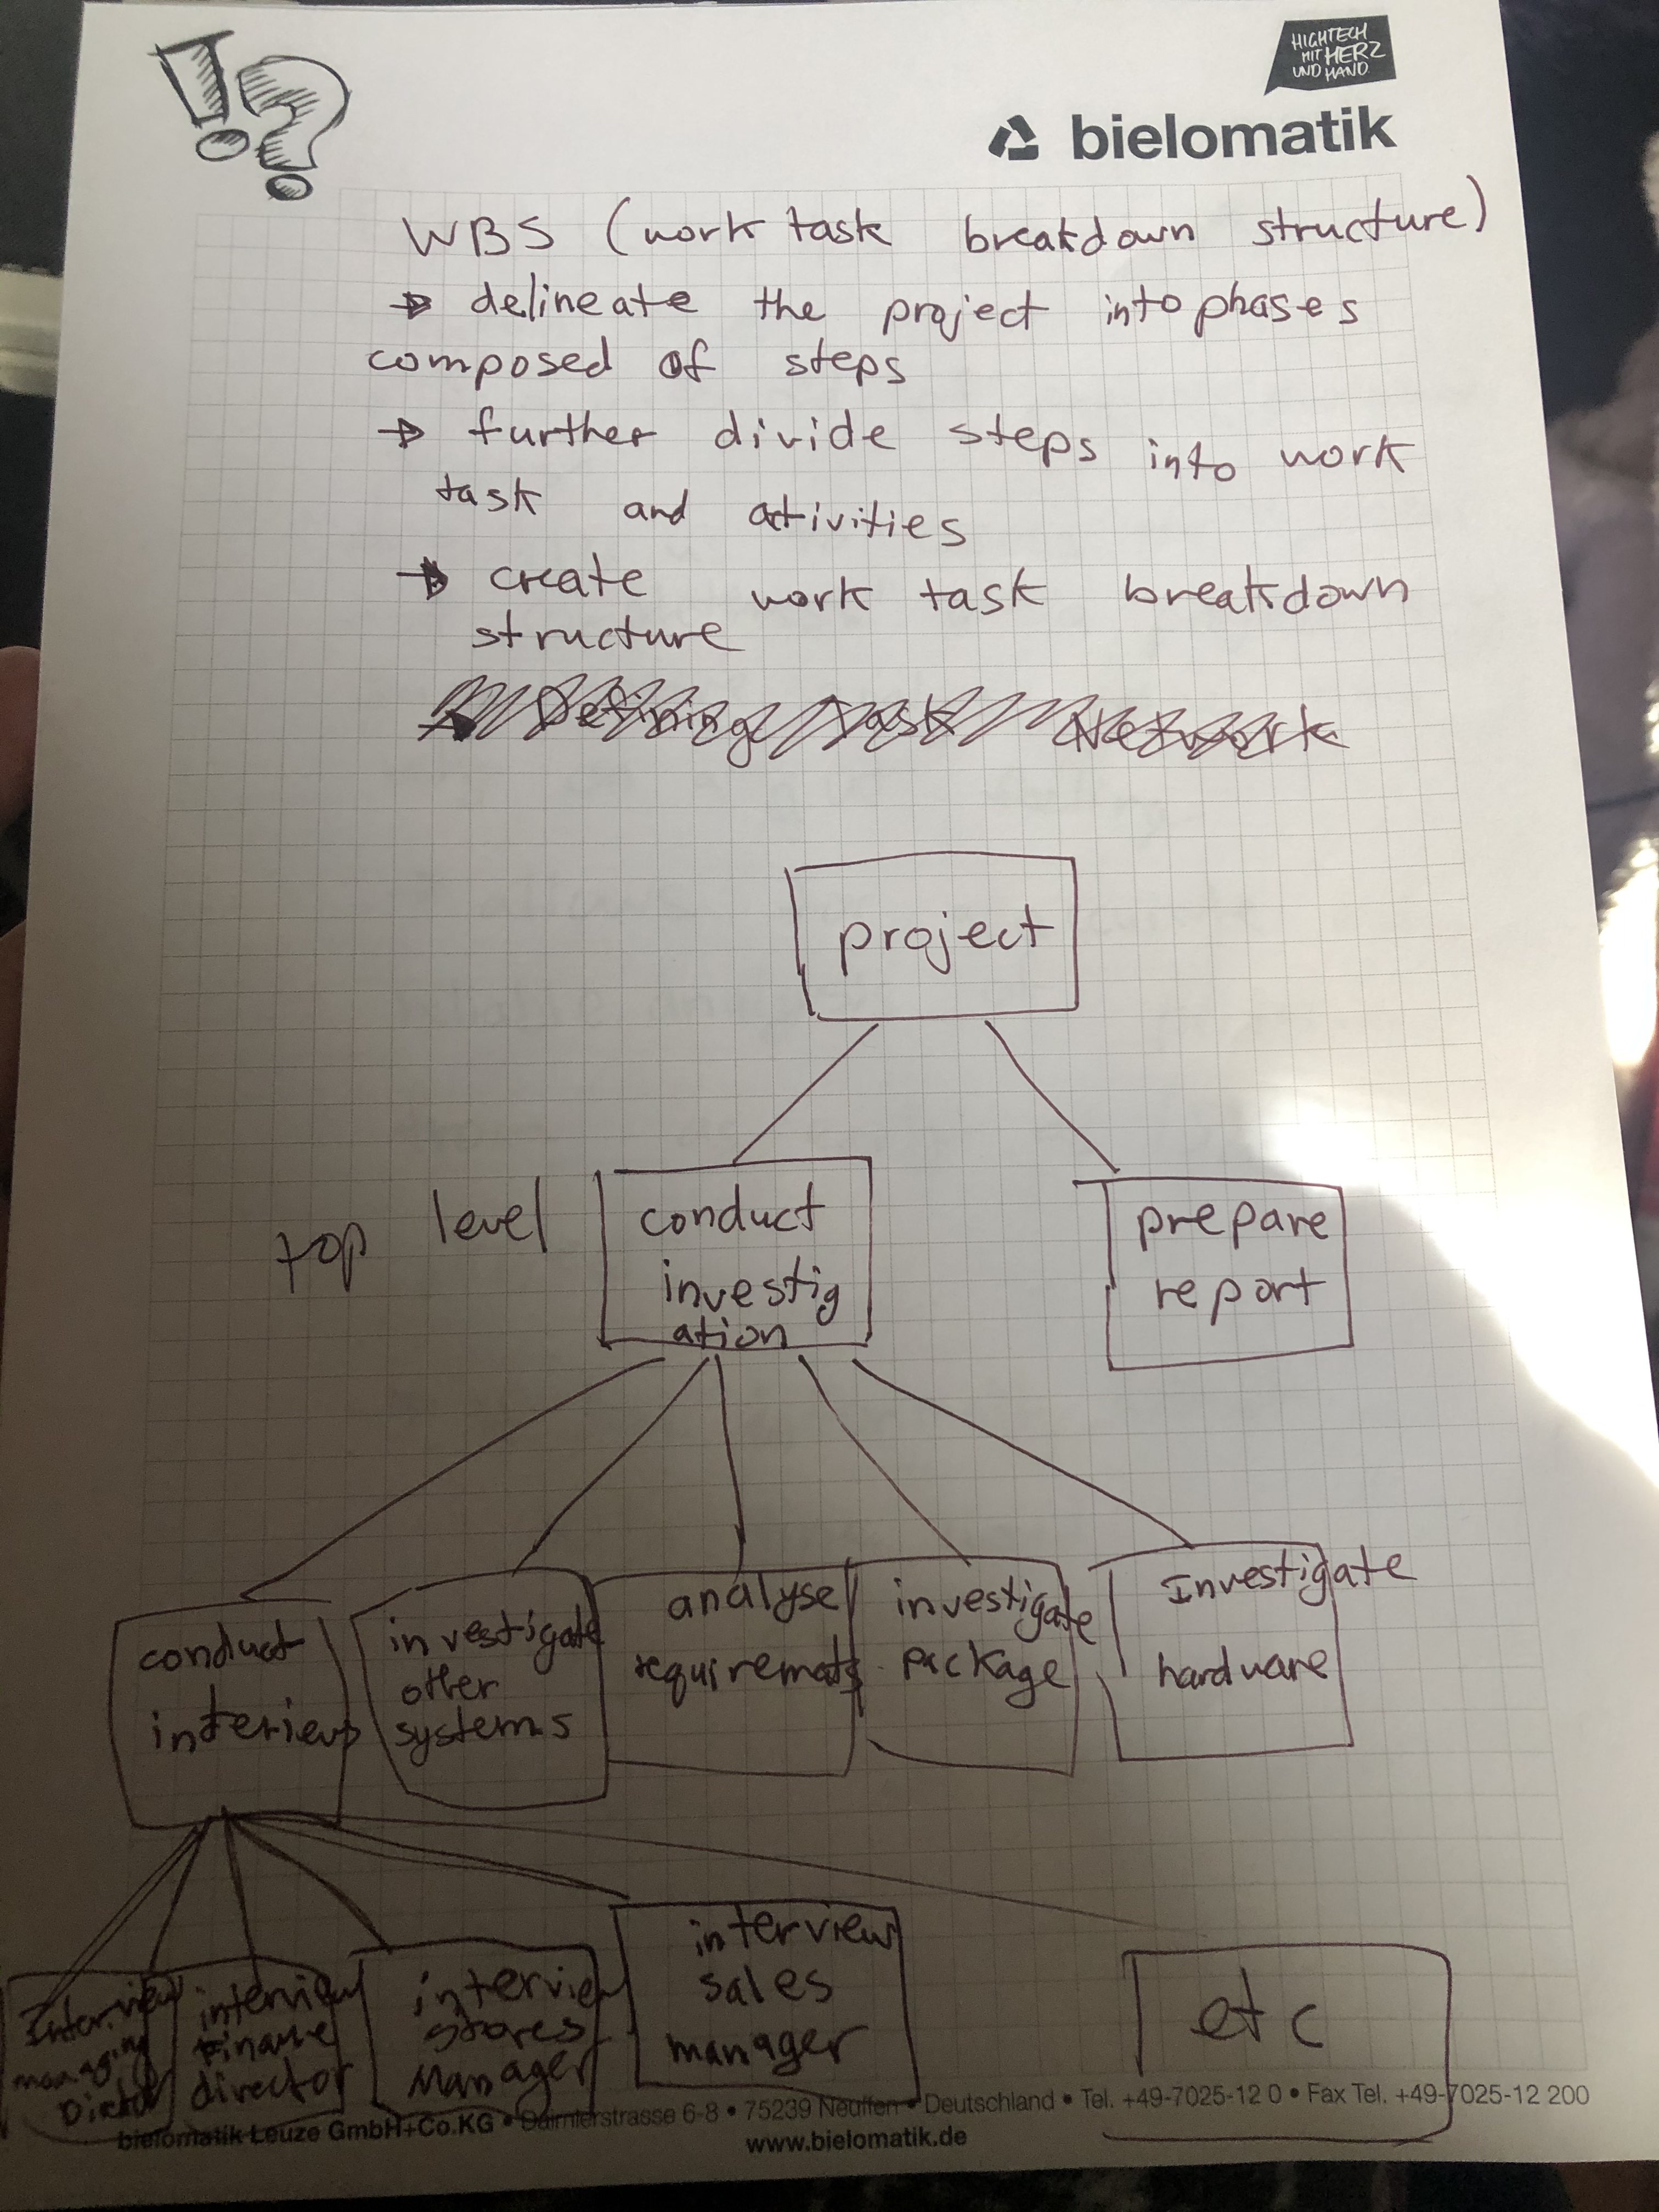 HIGHTECH
MIT HERZ
UND HAND
!?
bielomatik
WBS (work task breakdown structure)
→ delineate the project into phases
composed of steps
→ further divide steps into work
task and ativities
→ create work task breakdown
structure
Defining Task Network
project
top level
conduct
investig
ation
prepare
report
conduct
interiews
investigate
other
systems
analyse
investigate
package
Investigate
hardware
Interview
managing
interview
director
interview
stores
Manager
interview
sales
manager
etc
bielomatik Leuze GmbH+Co.KG • Daimlerstrasse 6-8 • 75239 Neuffen • Deutschland • Tel. +49-7025-12 0 • Fax Tel. +49-7025-12 200
www.bielomatik.de